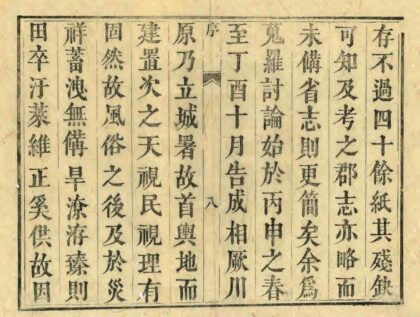 存不過四十餘紙其殘缺
可知及考之郡志亦略而
未備省志則更簡矣余爲
蒐羅討論始於丙申之春
至丁酉十月告成相厥川
序
八
原乃立城署故首輿地而
建置次之天視民視理有
固然故風俗之後及於災
祥蓄洩無備旱潦洊臻則
田卒汙萊維正奚供故因